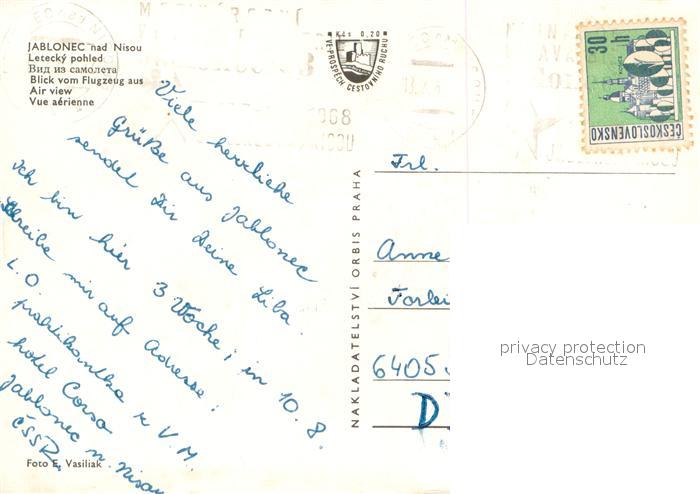 JABLONEC nad Nisou
Letecký pohled
Вид из самолета
Blick vom Flugzeug aus
Air view
Vue aérienne
Kčs 0,20
VE PROSPĚCH CESTOVNÍHO RUCHU
30 h
ČESKOSLOVENSKO
Viele herrliche
Grüße aus Jablonec
sendet Dir Deine Liba.
Ich bin hier 3 Woche; in 10.8.
Schreibe mir auf Adresse:
L. O. praktikantka R V. M.
hotel Corso
Jablonec n Nisou
ČSSR
Foto E. Vasiliak
NAKLADATELSTVÍ ORBIS PRAHA
Frl.
Anne
6405
D
privacy protection
Datenschutz